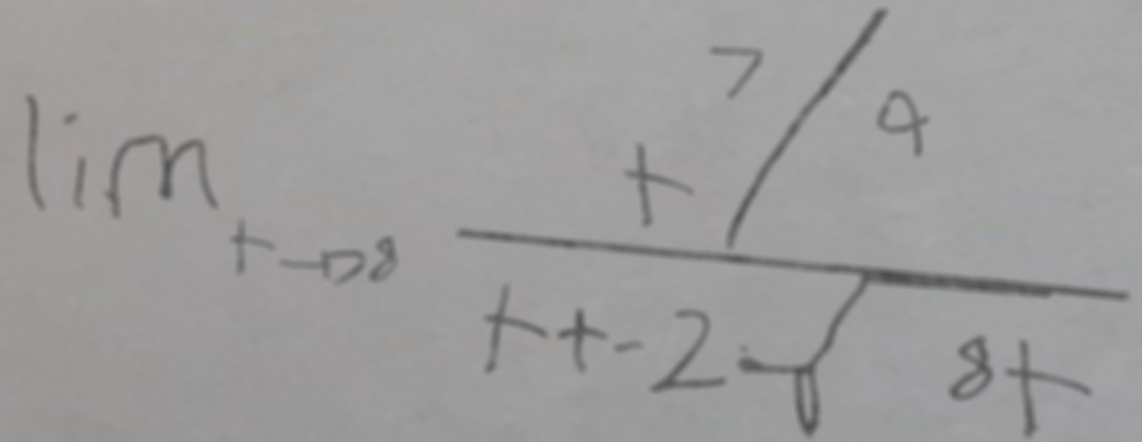 lim t→8 t^7/4 / t+-2-√8t